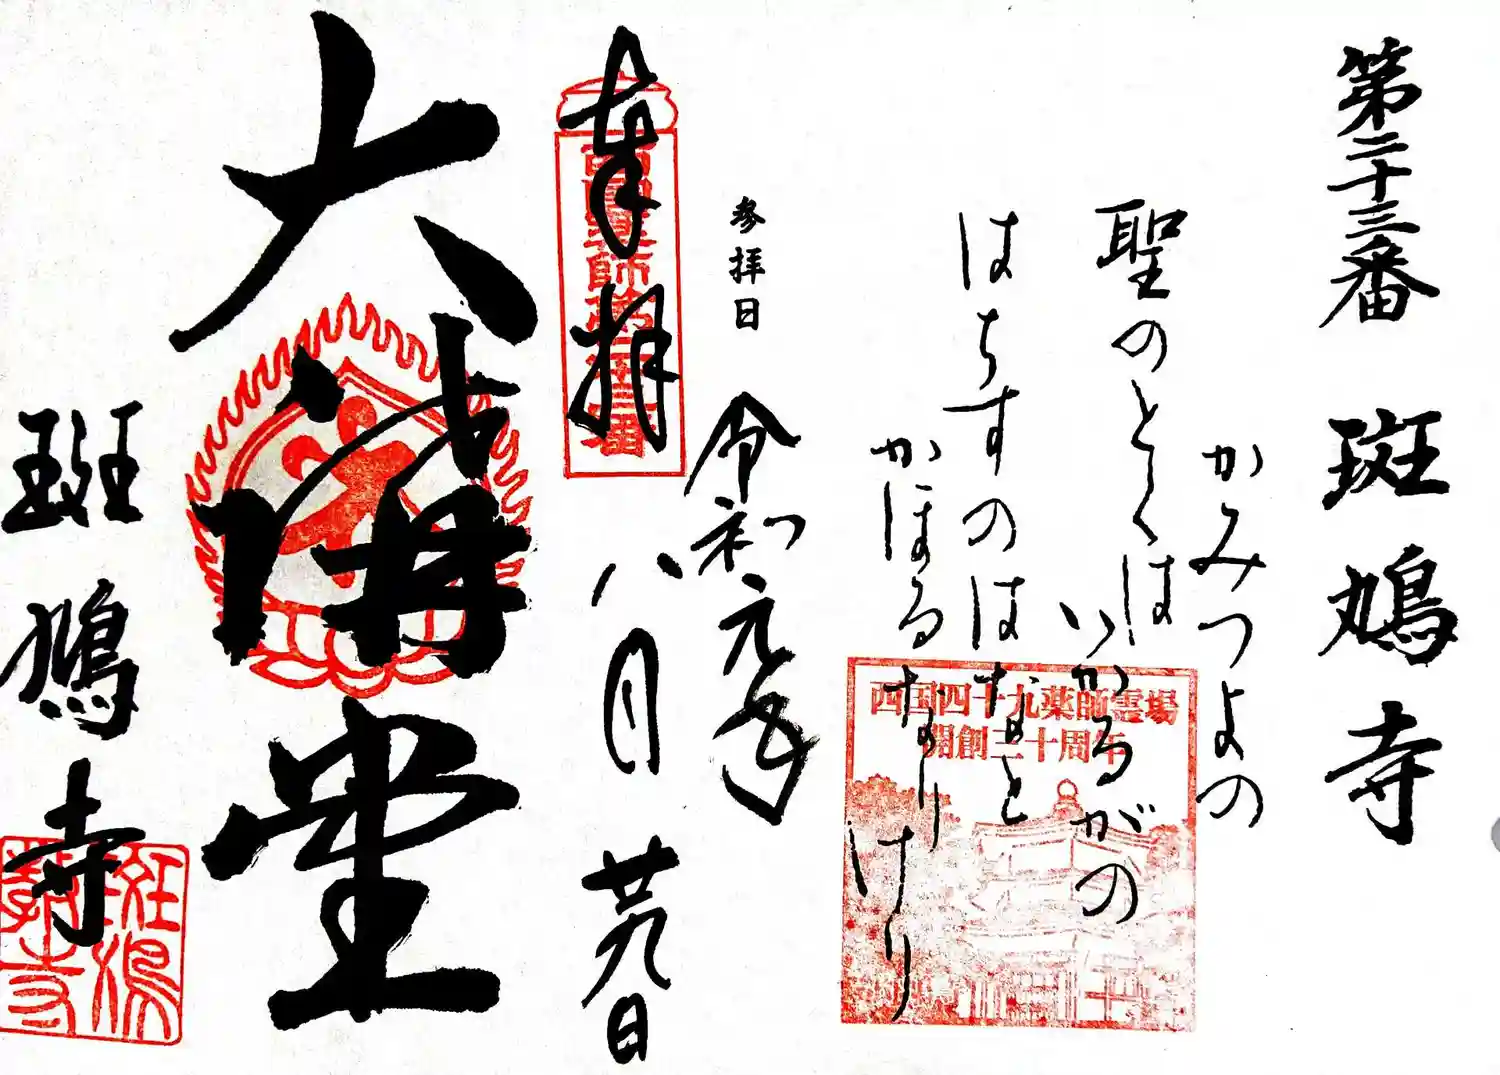 第二十三番 斑鳩寺
かみつよの
聖のとくは
いかるがの
はちすのはなと
かほるなりけり
西国四十九薬師霊場
開創三十周年
参拝日
令和元年
八月廿九日
奉拝
西國薬師第二十三番
大講堂
斑鳩寺
斑鳩寺